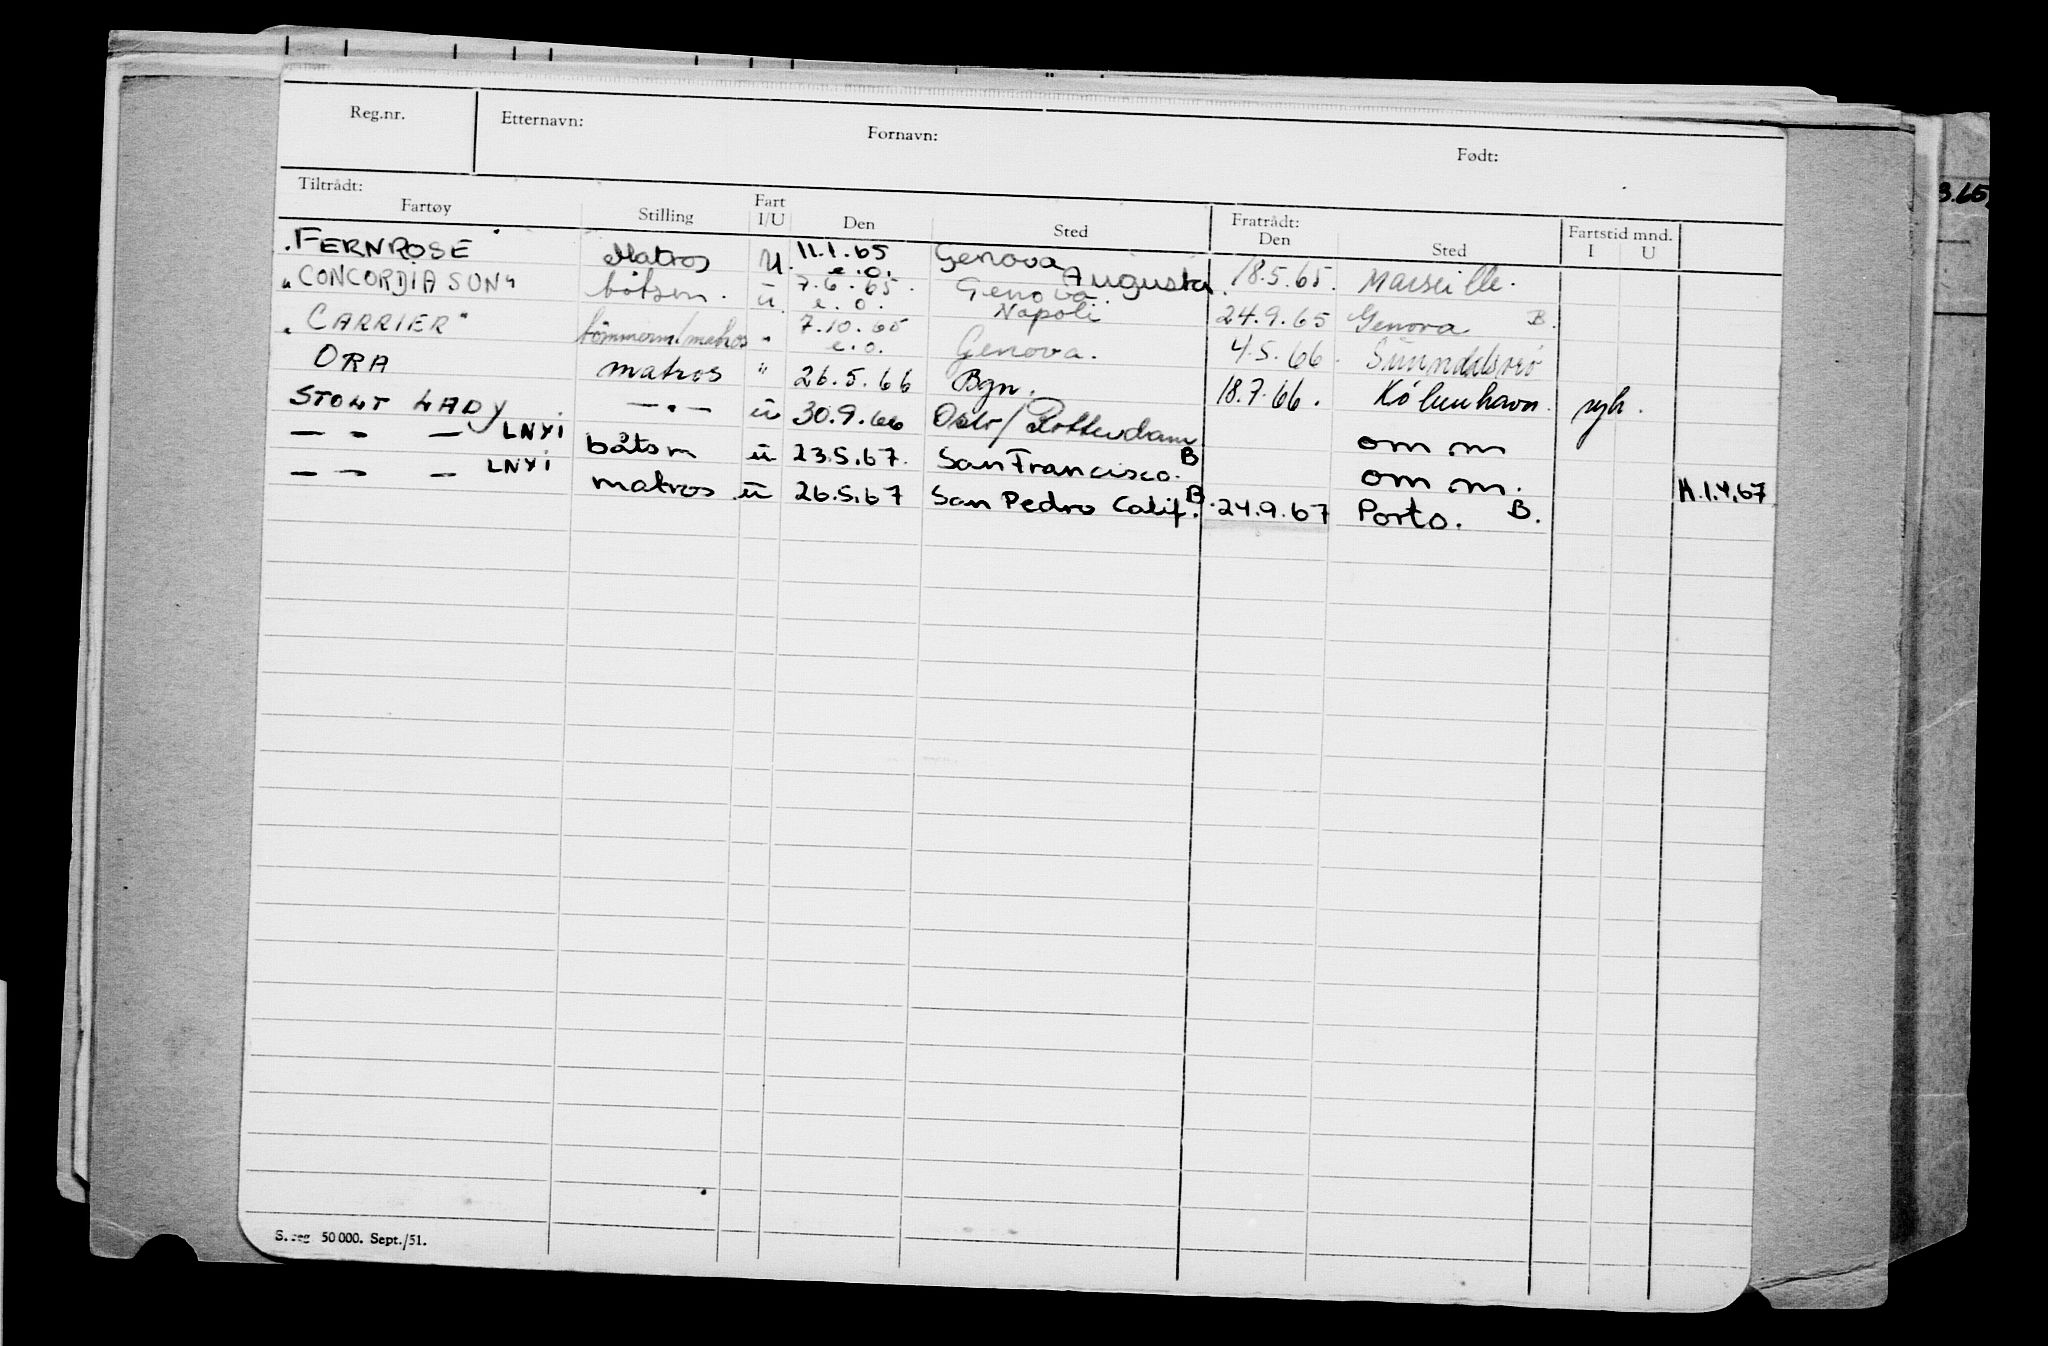 Reg.nr. Etternavn: Fornavn: Født:
Tiltrådt: Fratrådt: Fartstid mnd.
Fartøy Stilling Fart I/U Den Sted Den Sted I U
"FERNROSE" Matros U. 11.1.65 e.o. Genova Augusta 18.5.65. Marseille.
"CONCORDIA SUN" båtsm. u 7.6.65. e.o. Genova. Napoli 24.9.65 Genova B.
"CARRIER" tömmerm/matros " 7.10.65 e.o. Genova. 4.5.66. Sunndalsør
ORA matros " 26.5.66 Bgn. 18.7.66. København. syk.
STOLT LADY — " — u 30.9.66 Oslo/Rotterdam om m
— " — LNYI båtsm u 23.5.67. San Francisco. B om m.
— " — LNYI matros u 26.5.67 San Pedro Calif. B. 24.9.67 Porto. B. H.1.4.67
S.reg 50 000. Sept./51.
3.65